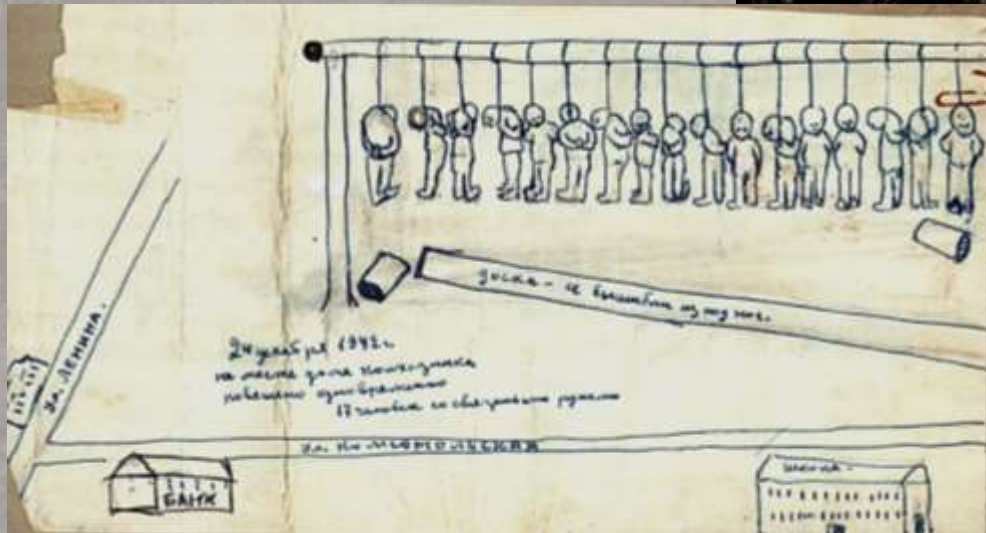 доска - её вышибли из под ног.
24 декабря 1942 г.
на месте дома колхозника
повешено одновременно
17 человек со связанными руками
ул. ЛЕНИНА.
ул. КОМСОМОЛЬСКАЯ
БАНК
ШКОЛА.